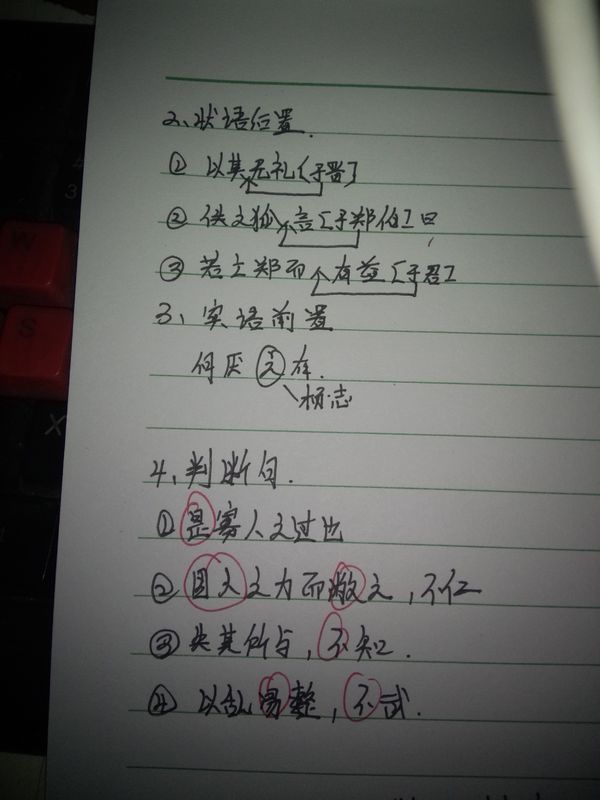 2、状语后置.
① 以其无礼[于晋]
② 佚之狐言[于郑伯]曰
③ 若亡郑而有益[于君]
3、宾语前置
何厌之有.
标志
4、判断句.
① 是寡人之过也
② 因人之力而敝之，不仁
③ 失其所与，不知.
④ 以乱易整，不武.
W
S
X
3